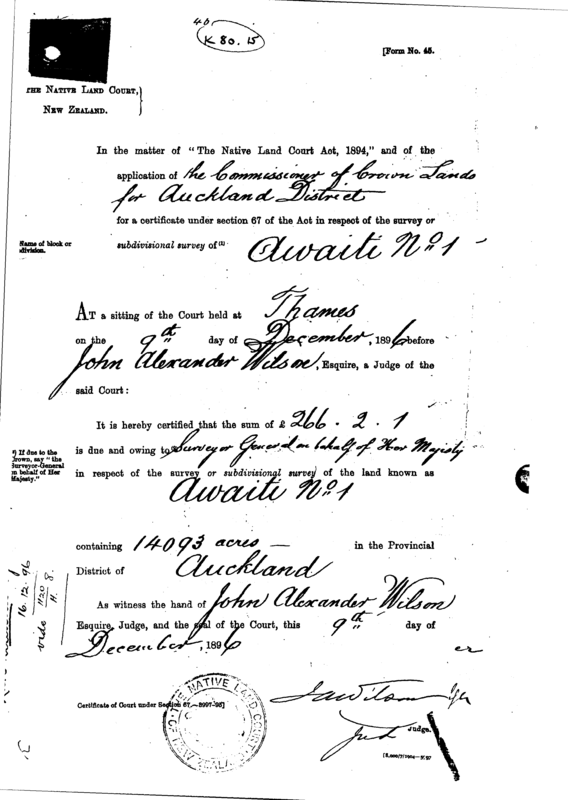 40
K 80. 15
[Form No. 45.
THE NATIVE LAND COURT,
NEW ZEALAND.
In the matter of "The Native Land Court Act, 1894," and of the
application of the Commissioner of Crown Lands
for Auckland District
for a certificate under section 67 of the Act in respect of the survey or
Name of block or
division.
subdivisional survey of (1) Awaiti No. 1
AT a sitting of the Court held at Thames
on the 9th day of December, 1896 before
John Alexander Wilson, Esquire, a Judge of the
said Court:
It is hereby certified that the sum of £ 266 . 2 . 1
is due and owing to Surveyor General on behalf of Her Majesty
If due to the
Crown, say "the
Surveyor-General
on behalf of Her
Majesty."
in respect of the survey or subdivisional survey of the land known as
Awaiti No. 1
containing 14093 acres — in the Provincial
District of Auckland
As witness the hand of John Alexander Wilson
Esquire, Judge, and the seal of the Court, this 9th day of
December, 1896
16.12.96
vide 1120 8.
H.
er
Certificate of Court under Section 67.—
THE NATIVE LAND COURT OF NEW ZEALAND
JAWilson
Jud
Judge.
3.